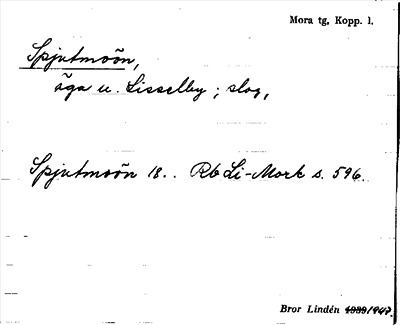 Mora tg, Kopp. l.
Spjutmoõn,
äga u. Lisselby; slog,
Spjutmoõn 18.. Rb Li-Mork s. 596.
Bror Lindén 1939/1947.